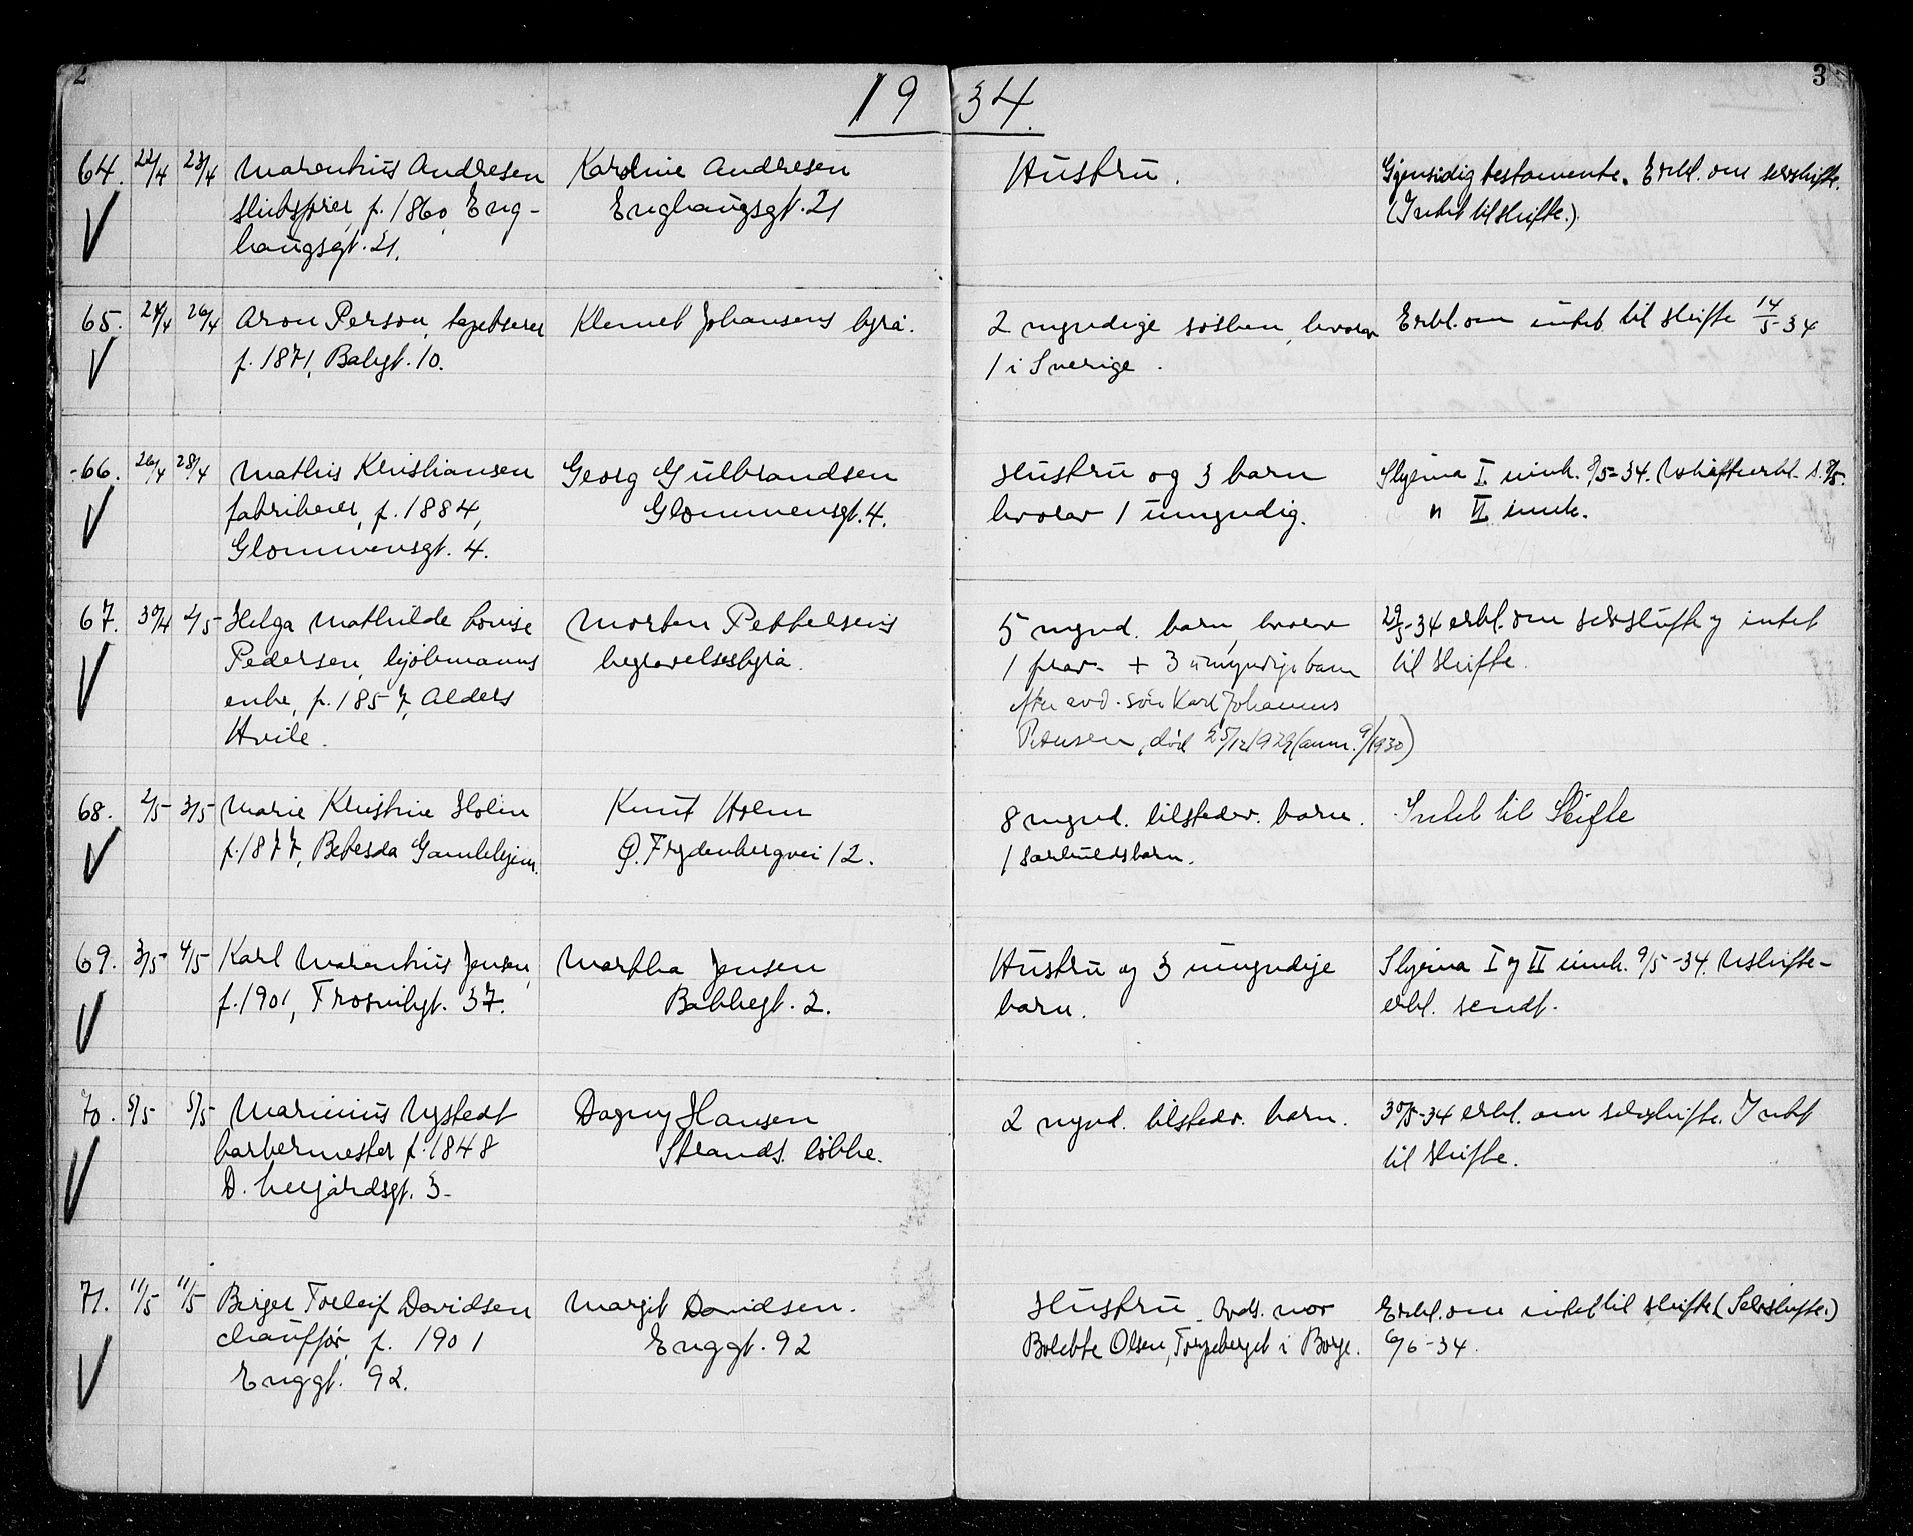 2
3
19 34.
64. 22/4 23/4 Marenhius Andresen
f. 1860, Eng-
haugsgt. 21.
Karoline Andresen
Enghaugsgt. 21
Hustru.
Gjensidig testamente. Erkl. om selvskifte.
(Intet til skifte.)
65. 24/4 26/4 Aron Person, tapetserer
f. 1871, Babygt. 10.
Klemet Johansens byrå.
2 myndige søsken, hvorav
1 i Sverige.
Erkl. om intet til skifte 14/5-34
66. 26/4 28/4 Mathis Kristiansen
fabrikeier, f. 1884,
Glommensgt. 4.
Georg Gulbrandsen
Glommensgt. 4.
Hustru og 3 barn
hvorav 1 umyndig.
Skjema I innk. 8/5-34. Uskifteerkl. s. 8/5.
" II innk.
67. 30/4 2/5 Helga Mathilde Lovise
Pedersen, kjøbmanns
enke, f. 1857, Alders
Hvile.
Morten Pettersens
begravelsesbyrå.
5 mynd. barn, hvorav
1 frav. + 3 umyndige barn
efter avd. søn Karl Johannus
død 25/12 1929 (anm. 9/1930)
29/5-34 erkl. om selvskifte og intet
til skifte.
68. 2/5 3/5 Marie Kristine Holm
f. 1877, Betesda Gamlehjem.
Knut Holm
Ø. Frydenbergvei 12.
8 mynd. tilstedev. barn.
1 særkuldsbarn.
Intet til Skifte
69. 3/5 4/5 Karl Marenhius Jensen,
f. 1901, Trosvikgt. 37.
Martha Jensen
Bakkegt. 2.
Hustru og 3 umyndige
barn.
Skjema I og II innk. 9/5-34. Uskifte-
erkl. sendt.
70. 5/5 5/5 Marinius Nystedt
barbermester f. 1848
3.
Dagny Hansen
Strands løkke.
2 mynd. tilstedev. barn.
30/5-34 erkl. om selvskifte. Intet
til skifte.
71. 11/5 11/5 Birger Torleif Davidsen
chauffør, f. 1901
Enggt. 92.
Margit Davidsen.
Enggt. 92
Hustru. Avds. mor
Bolette Olsen, Torpeberget i Borge.
Erkl. om intet til skifte (Selvskifte.)
6/6-34.